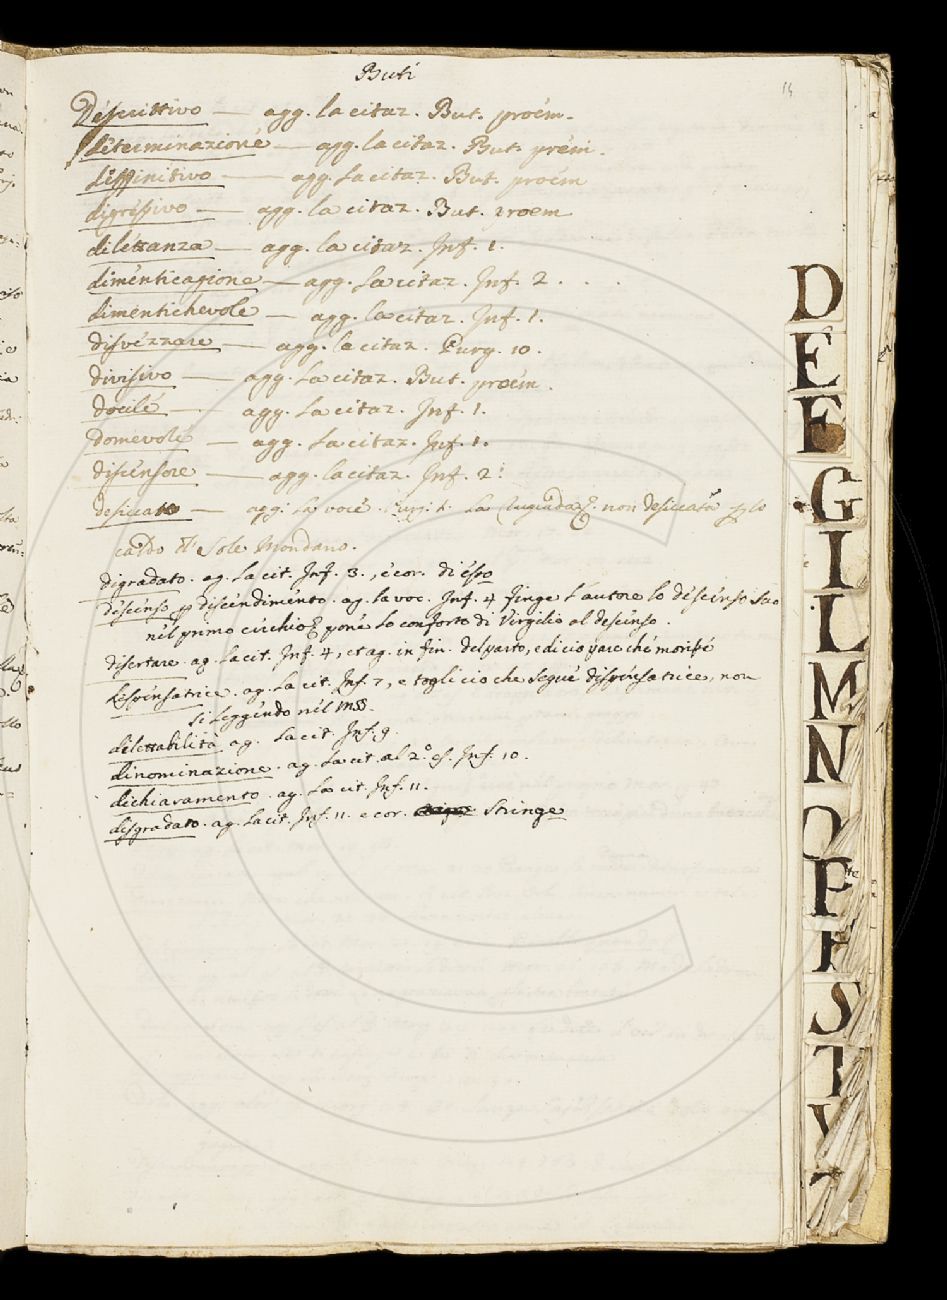 Buti
Descrittivo — agg. la citaz. But. proem.
determinazione — agg. la citaz. But. prem.
diffinitivo — agg. La citaz. But. proem
digressivo — agg. la citaz. But. proem
dilettanza — agg. la citaz. Inf. 1.
dimenticagione — agg. La citaz. Inf. 2 . . .
dimentichevole — agg. la citaz. Inf. 1.
disvezzare — agg. la citaz. Purg. 10.
divisivo — agg. La citaz. But. proem.
docile — agg. La citaz. Inf. 1.
domevole — agg. La citaz. Inf. 1.
discensore — agg. la citaz. Inf. 2.
desiccato — agg. La voce. La rugiada non desiccata lo
caldo Sole Mondano.
digradato. ag. La cit. Inf. 3., e cor. di esso
descenso discendimento. ag. La voc. Inf. 4 finge l'autore lo descenso suo
nel primo circhio pone lo conforto di Virgilio al descenso.
disertare. ag. La cit. Inf. 4, et ag. in fin. del parto, e di ciò pare che morisse
dispensatrice. ag. La cit. Inf. 7, e togli ciò che segue dispensatrice, non
si leggendo nel MSS.
dilettabilità ag. La cit. Inf. 9.
dinominazione. ag. La cit. al 2.° es. Inf. 10.
dichiaramento. ag. La cit. Inf. 11.
disgradato. ag. La cit. Inf. 11. e cor. Stringe
D
E
F
G
I
L
M
N
O
P
R
S
T
V